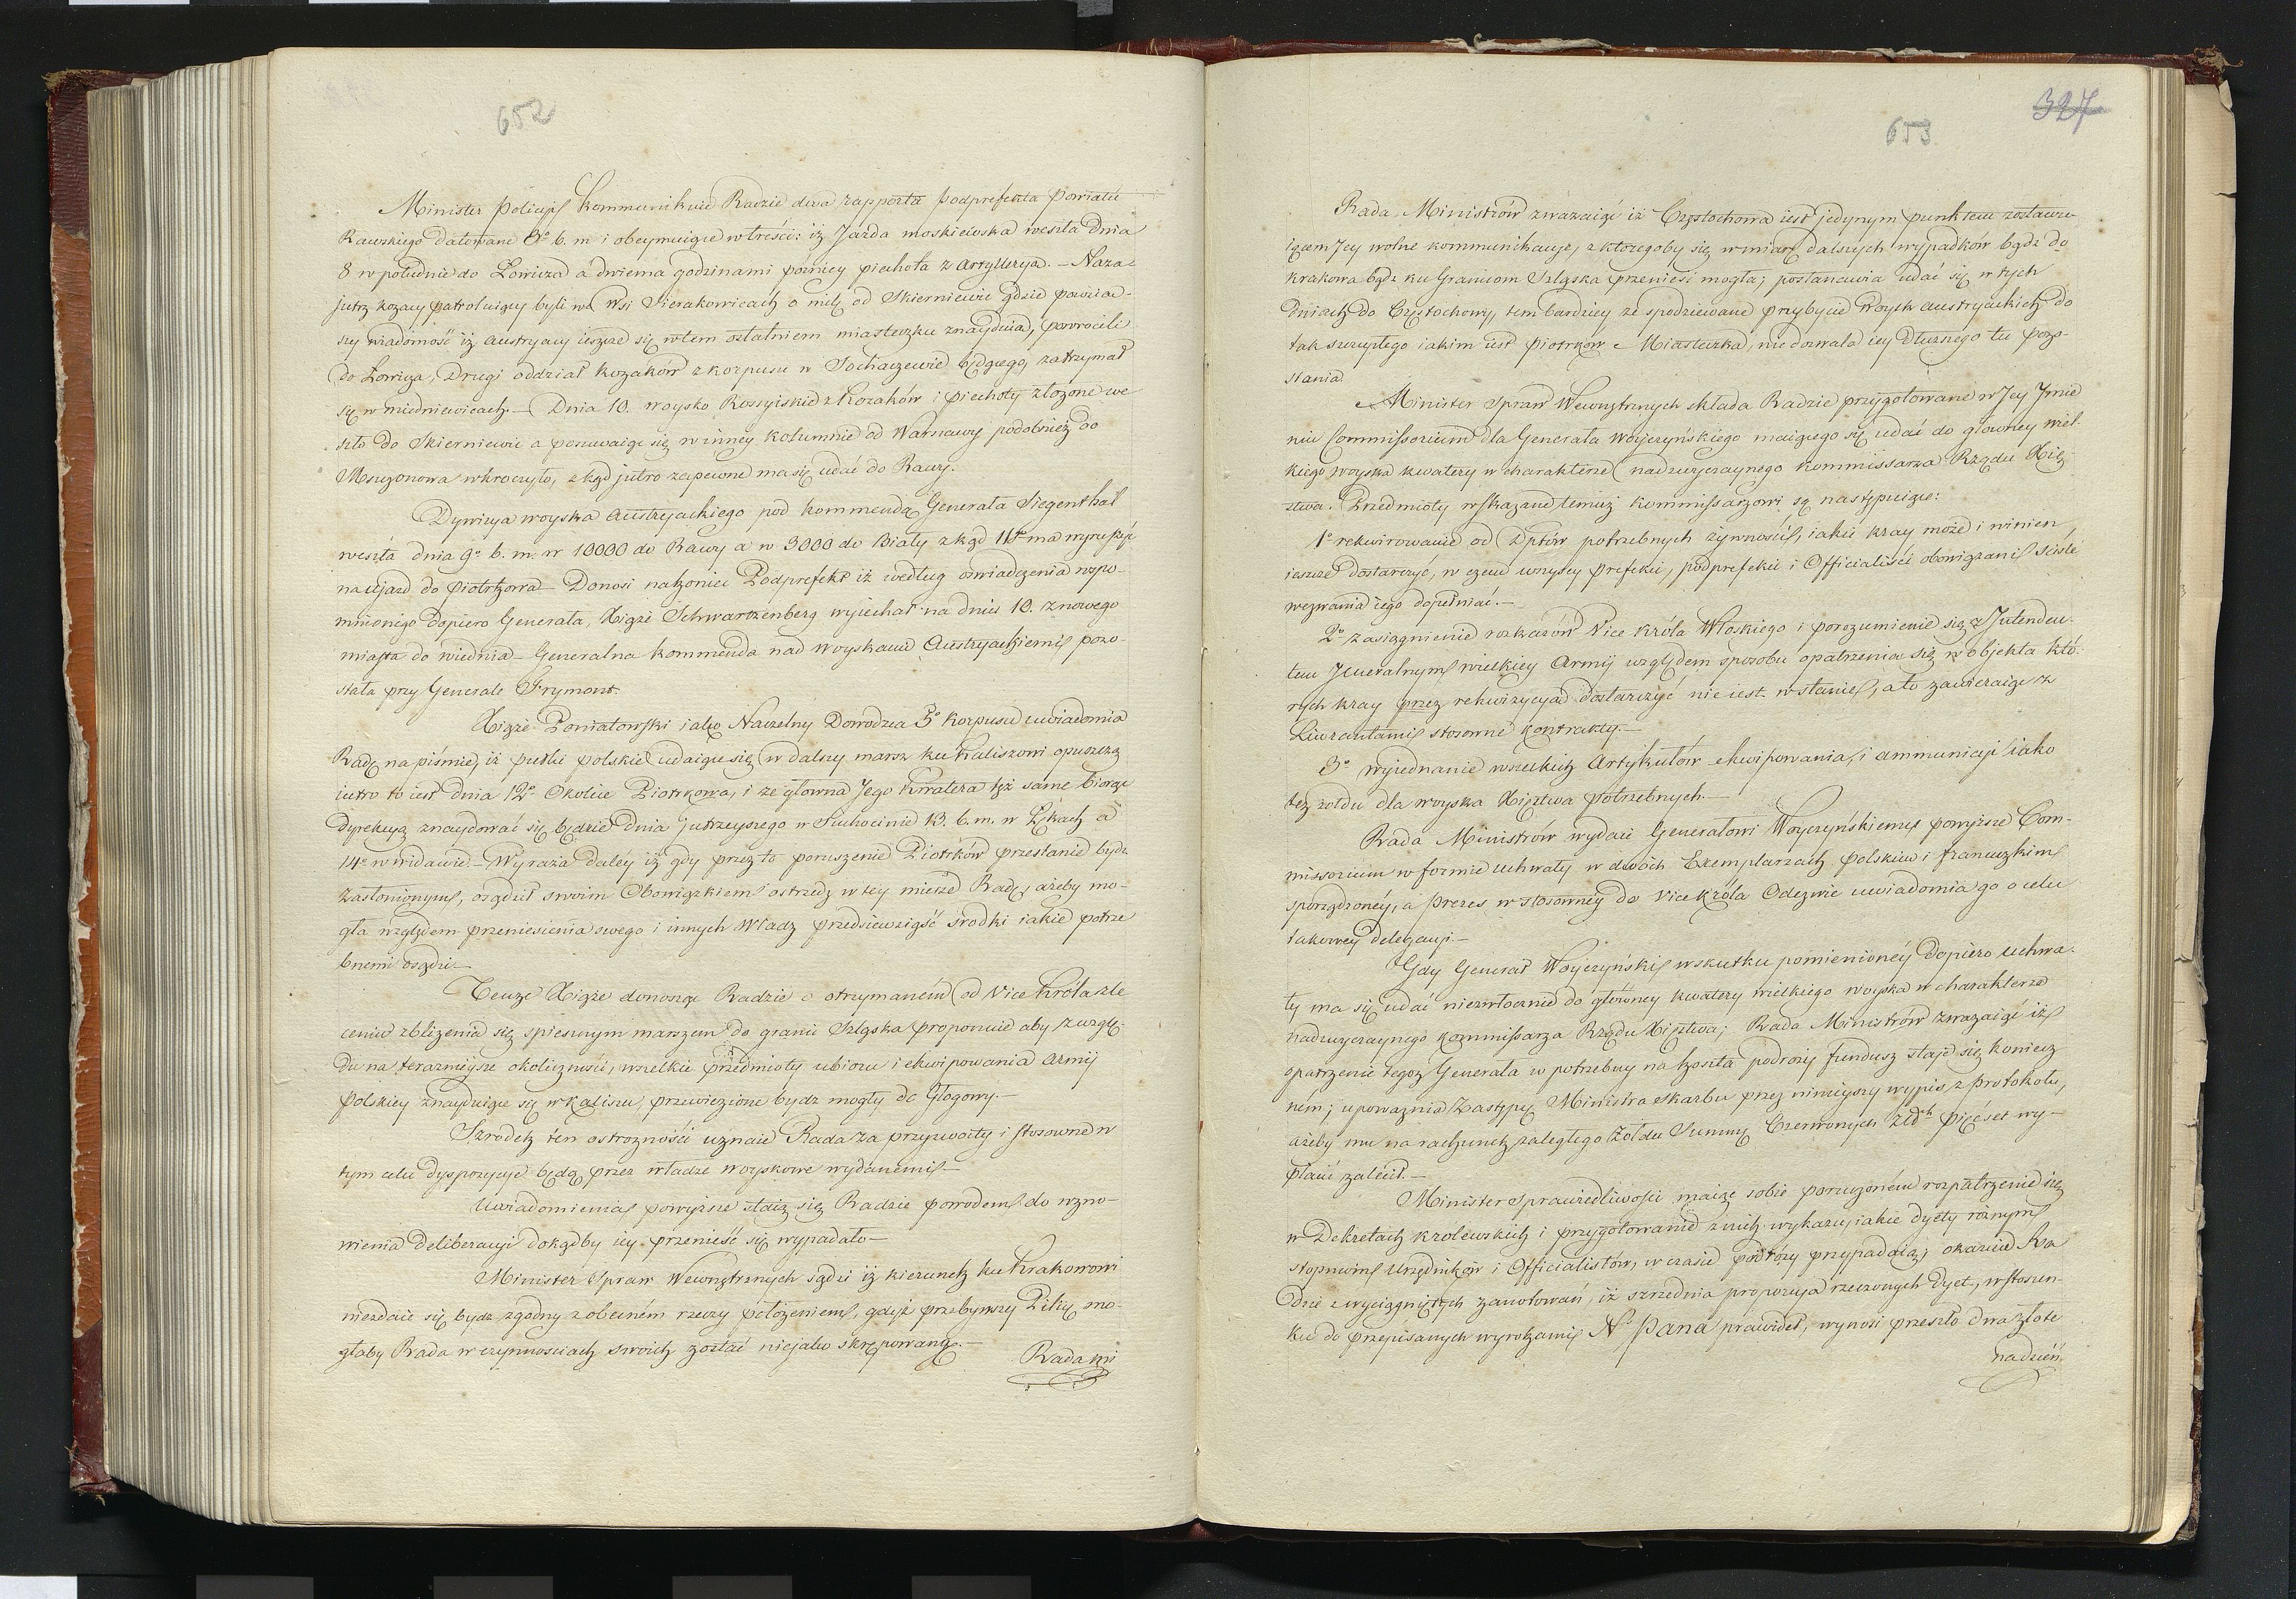 652
Minister Policyi kommunikuie Radzie dwa rapporta Podprefekta Powiatu
Rawskiego datowane 9º b. m. i obeymuiące w treści: iż Jazda moskiewska weszła dnia
8 w południe do Łowicza a dwiema godzinami pózniey piechota z artylleryą. – Naza-
jutrz kozacy patroluiący byli we Wsi Sierakowicach o milę od Skierniewic gdzie powziaw-
szy wiadomość iż austryacy ieszcze się w tem ostatniem miasteczku znayduią, powrócili
do Łowicza, Drugi oddział kozaków z korpusu w Sochaczewie będącego, zatrzymał
się w miedniewicach. – Dnia 10. woysko Rossyiskie z kozaków i piechoty złożone we
szło do Skierniewic a posuwaiąc się w inney kolumnie od Warszawy podobnież do
Mszczonowa wkroczyło, zkąd jutro zapewne ma się udać do Rawy.
Dywizya woyska austryackiego pod kommendą Generała Siegenthal
weszła dnia 9º b. m. w 10000 do Rawy a w 3000 do Biały zkąd 11º ma wyruszyć
na ujazd do Piotrkowa – Donosi nakoniec Podprefekt iż według oświadczenia wspo-
mnionego dopiero Generała, Xiąże Schwartzenberg wyiechał na dniu 10. z nowego
miasta do wiednia – Generalna kommenda nad woyskami Austryackiemi pozo-
stała przy Generale Frymont.
Xiąże Poniatowski iako Naczelny Dowodzca 5º korpusu uwiadomia
Radę na piśmie, iż pułki polskie udaiące się w dalszy marsz ku Kaliszowi opuszczą
iutro to iest dnia 12º okolice Piotrkowa, i że główna Jego Kwatera też same biorąc
dyrekcyą znaydować się będzie dnia jutrzeyszego w Suchocinie 13. b. m. w Łękach a
14º w widawie – Wyraża daléy iż gdy przez to poruszenie Piotrków przestanie bydz
zasłonionym, osądził swoim obowiązkiem ostrzedz w tey mierze Radę, ażeby mo-
gła względem przeniesienia swego i innych Władz przedsiewziąść środki iakie potrze
bnemi osądzi –
Tenże Xiąże donosząc Radzie o otrzymaném od Vice Króla zle
ceniu zbliżenia się spiesznym marszem do granic Szląska proponuie aby z wzglę-
du na teraznieysze okoliczności, wszelkie przedmioty ubioru i ekwipowania armij
Polskiey znayduiące się w kaliszu, przewiezione bydz mogły do Głogowy. –
Szrodek ten ostrożności uznaie Rada za przyzwoity i stosowne w
tym celu dyspozycye będą przez władze woyskowe wydanemi –
Uwiadomienia powyższe staią się Radzie powodem do wzno-
wienia deliberacyi dokądby iey przenieść się wypadało –
Minister Spraw Wewnętrznych sądzi iż kierunek ku Krakowowi
niezdaie się bydz zgodny z obecném rzeczy położeniem, gdyż przebywszy Pilicę mo-
głaby Rada w czynnościach swoich zostać niejako skrępowaną. –
Rada mi
327
653
Rada Ministrów zważaiąc iż Częstochowa iest jedynym punktem zostawu-
iącem Jey wolne kommunikacye, z któregoby się w miarę dalszych wypadków bądz do
krakowa bądz ku Granicom Szląska przenieść mogła; postanawia udać się w tych
dniach do Częstochowy, tem bardziey że spodziewane przybycie woysk austryackich do
tak szczupłego iakim iest Piotrków Miasteczka, niedozwala iey dłuższego tu pozo-
stania
Minister Spraw Wewnętrznych składa Radzie przygotowane w Jey Jmie
niu Commissorium dla Generała Woyczyńskiego maiącego się udać do głowney wiel-
kiego woyska kwatery w charakterze nadzwyczaynego kommissarza Rządu Xię-
stwa. Przedmioty wskazane temuż kommissarzowi są następuiące:
1º rekwirowanie od Dptów potrzebnych żywności, iakie kray może i winien
ieszcze dostarczyć, w czem wszyscy prefekci, podprefekci i Officialiści obowiązani ściśle
wezwania iego dopełniać. –
2º zasiągnienie rozkazów Vice króla Włoskiego i porozumienie się z Intenden-
tem Jeneralnym wielkiey Armij względem sposobu opatrzenia się w objekta któ-
rych kray przez rekwizycyą dostarczyć nie iest w stanie, a to zawieraiąc z
Liwerantami stosowne kontrakty. –
3º wyiednanie wszelkich Artykułów ekwipowania, i ammunicyi iako
też żołdu dla woyska Xięstwa potrzebnych. –
Rada Ministrów wydaie Generałowi Woyczyńskiemu powyższe Com-
missorium w formie uchwały w dwóch Exemplarzach polskim i francuzkim
sporządzonéy, a Prezes w stosowney do Vice króla Odezwie uwiadomia go o celu
takowey delegacyi. –
Gdy Generał Woyczyński w skutku pomienionéy dopiero uchwa-
ły ma się udać niezwłocznie do główney kwatery wielkiego woyska w charakterze
nadzwyczaynego kommissarza Rządu Xięstwa; Rada Ministrów zważaiąc iż
opatrzenie tegoż Generała w potrzebny na koszta podroży fundusz staje się koniecz
ném; upoważnia Zastępcę Ministra skarbu przez ninieyszy wypis z protokołu,
ażeby mu na rachunek zaległego żołdu Summę Czerwonych Złch pięćset wy-
płacić zalécił. –
Minister Sprawiedliwości maiąc sobie poruczoném rozpatrzenie się
w Dekretach królewskich i przygotowanie z nich wykazu, iakie dyety różnym
stopniom Urzędników i Officialistów, w czasie podróży przypadaią; okazuie Ra
dzie z wyciągniętych zanotowań, iż szrzednia proporcya rzeczonych dyet, w stosun-
ku do przepisanych wyrokami N. Pana prawideł, wynosi przeszło dwa złote
na dzień